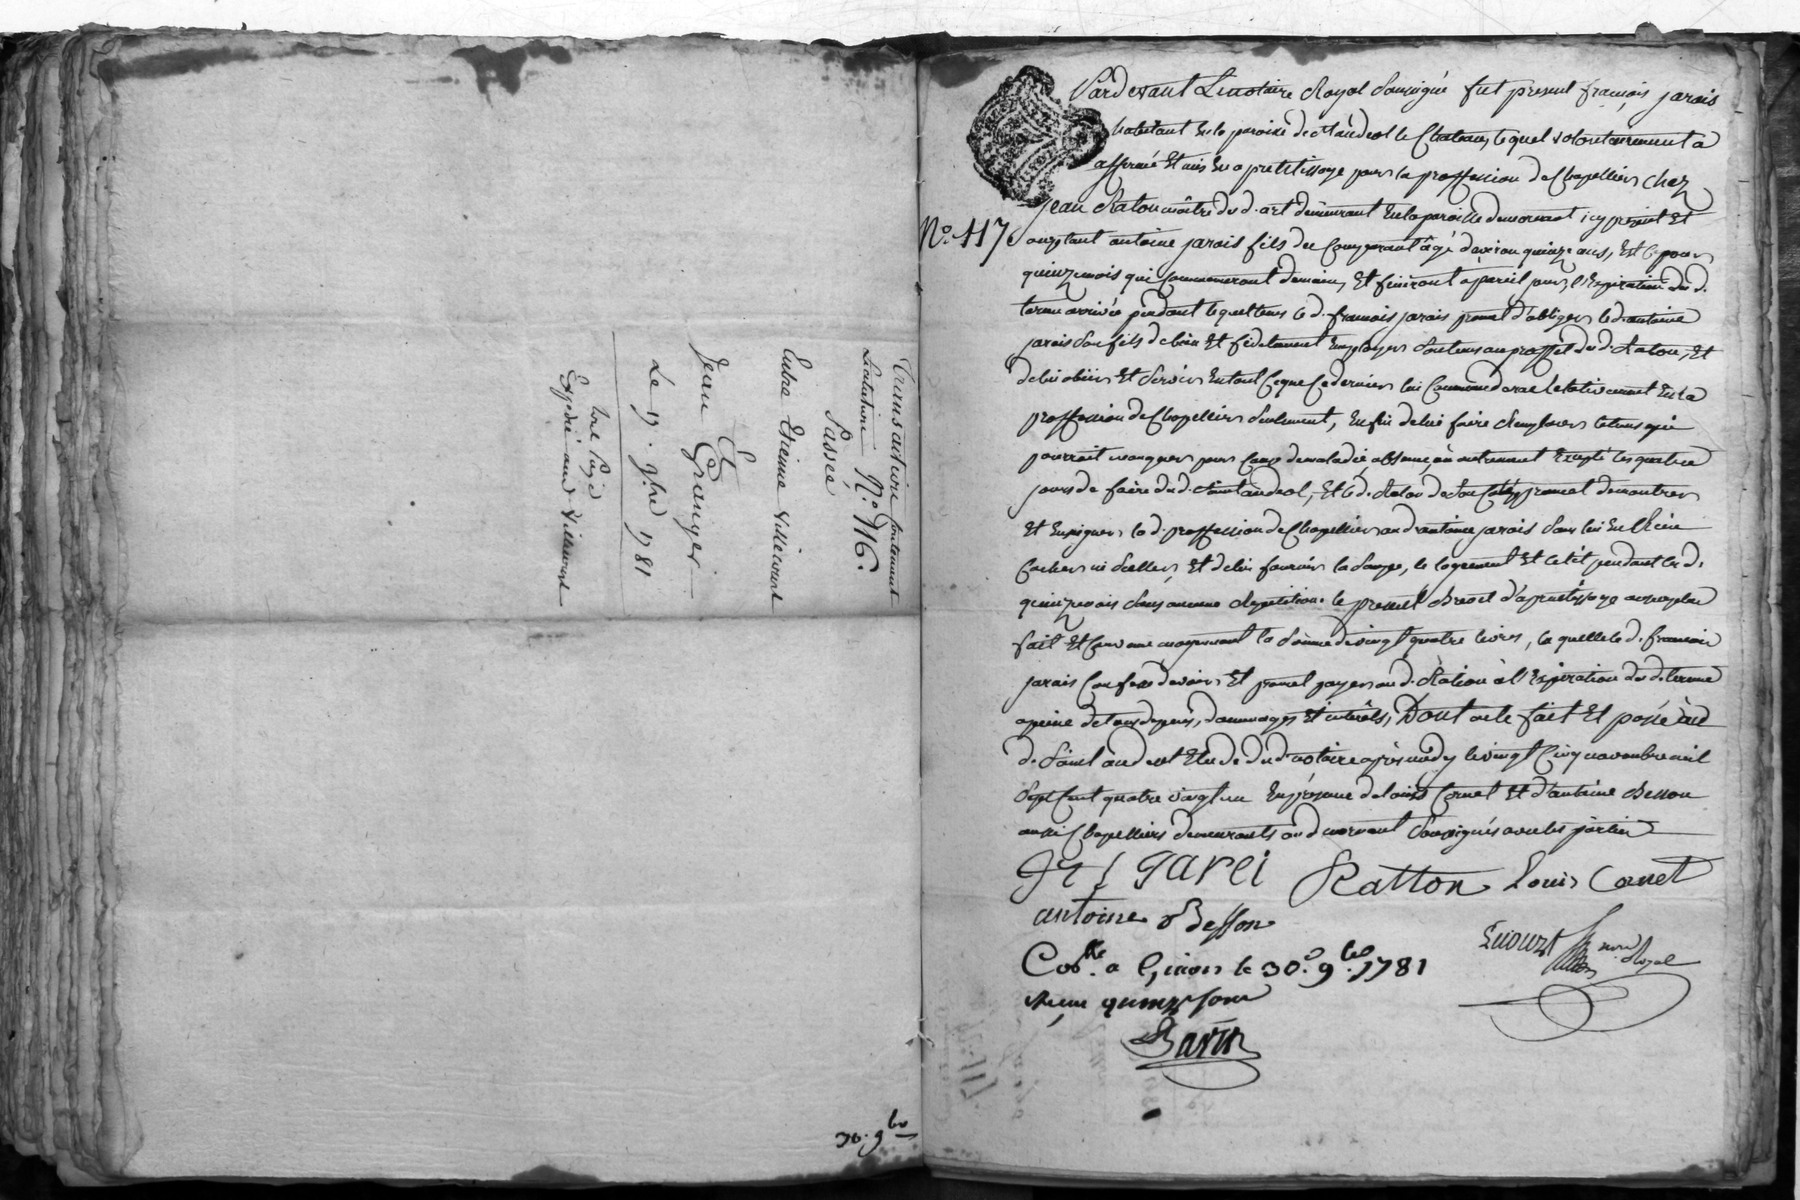 Transaction
N.° 116.
Passée
Entre Etienne Villecourt
Et
Jean Granger
Le 19. 9bre 1781
Expedié aud Villecourt
30. 9bre
Pardevant Le notaire Royal Soussigné fut present françois jarais
habitant En la paroisse de St andeol le Chateau, lequel volontairement a
affermé Et mis En apretissage pour la proffession de Chapellier, chez
N.° 117
jean Raton maître dud. art demeurant En la paroisse de mornant icy present Et
acceptant antoine jarais fils du Comparant âgé d'environ quinze ans, Et ce pour
quinze mois qui Commenceront demain, Et finiront a pareil jour, l'Expiration dud.
terme arrivée pendant lequel tems led. françois jarais promet d'obliger led. antoine
jarais Son fils de bien Et fidelement Employer Son tems au proffet dud. Raton, Et
de lui obéir Et Servir En tout Ce que Ce dernier lui Commandera Relativement En la
proffession de Chapellier Seulement, Enfin de lui faire Remplacer le tems qui
pourroit manquer pour Cause de maladie, absence, ou autrement Excepté les quatre
jours de foire dud. Saint andeol, Et led. Raton de Son Coté promet de montrer
Et Enseigner lad. proffession de Chapellier aud antoine jarais Sans lui En Rien
Cacher ni Sceller, Et de lui fournir la Soupe, le logement Et le lit pendant lesd.
quinze mois Sans aucune Repetition. le present Brevet d'apretissage
fait Et Convenu moyennant la Somme de vingt quatre livres, laquelle led. françois
jarais Confesse devoir Et promet payer aud. Raton à l'Expiration dud. terme
a peine de tous depens, dommages Et interêts, Dont acte fait Et passé aud
d. Saint andeol Etude dud notaire après midy le vingt Cinq novembre mil
Sept Cent quatre vingt un En presence de Louis Cornet Et d'antoine Besson
aussi Chapelliers demeurants aud mornant Soussignés avec les parties
garei Ratton Louis Cornet
antoine Besson
Villecourt nore Royal
Colle. a Givors le 30. 9bre. 1781
Reçu quinze sous
Bavin